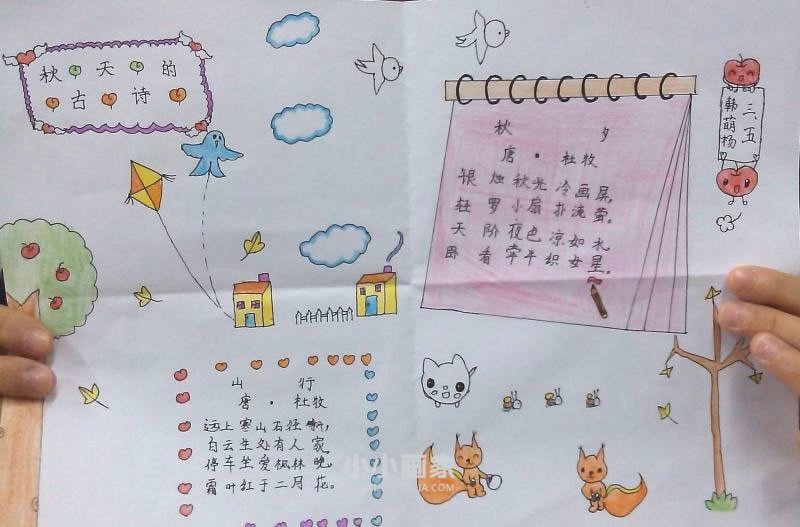 秋天的
古诗
秋夕
唐·杜牧
银烛秋光冷画屏,
轻罗小扇扑流萤。
天阶夜色凉如水,
卧看牵牛织女星。
三、五
韩萌杨
山行
唐·杜牧
远上寒山石径斜,
白云生处有人家。
停车坐爱枫林晚,
霜叶红于二月花。
小小画家
XIAOHUAJIA.COM